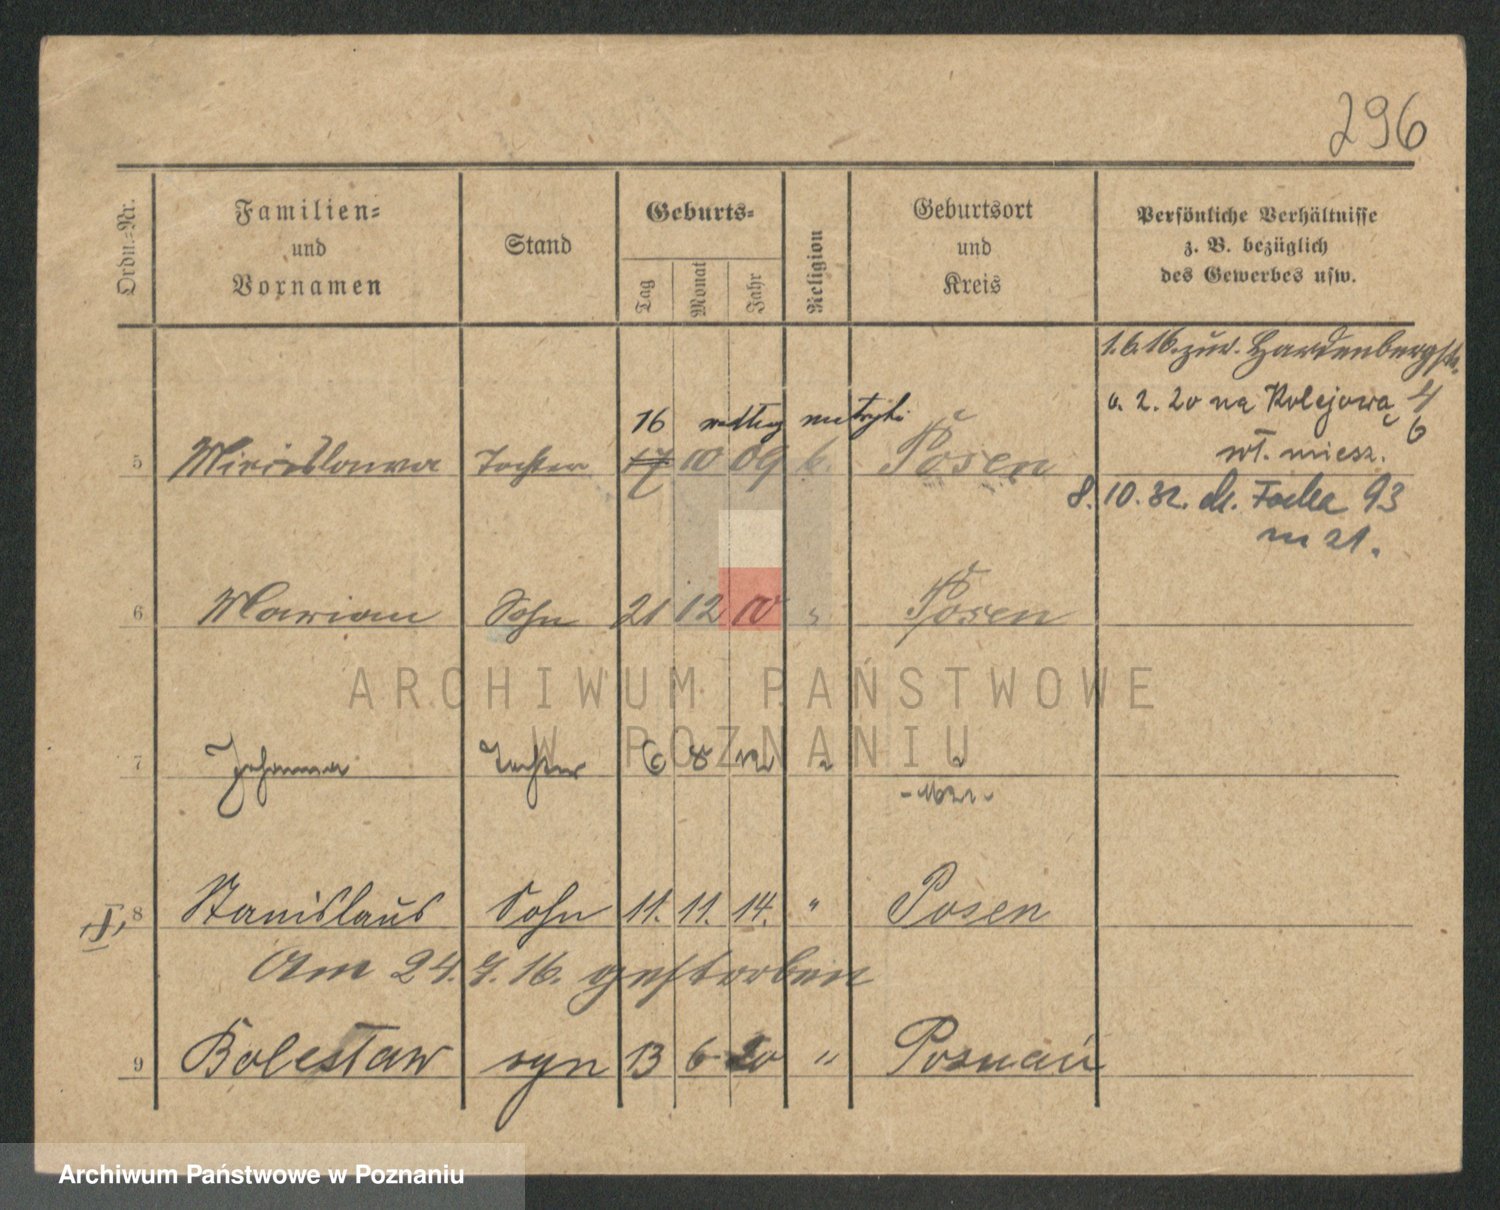 296
Ordn.-Nr.
Familien-
und
Vornamen
Stand
Geburts-
Tag
Monat
Jahr
Religion
Geburtsort
und
Kreis
Persönliche Verhältnisse
z. B. bezüglich
des Gewerbes usw.
1.6.16. zur. Hardenbergstr.
6. 2. 20 na Kolejową 4/6
wł. miesz.
16 według metryki
5 Miecislawa Tochter 17 10 09 k. Posen
8. 10. 32. M. Focha 93
m 21.
6 Marian Sohn 21 12 10 " Posen
7 Johanna Tochter 6 8 12 "
I, 8 Stanislaus Sohn 11. 11. 14. " Posen
Am 24. 4. 16. gestorben
9 Bolesław syn 13 6 20 " Poznań
ARCHIWUM PAŃSTWOWE
W POZNANIU
Archiwum Państwowe w Poznaniu